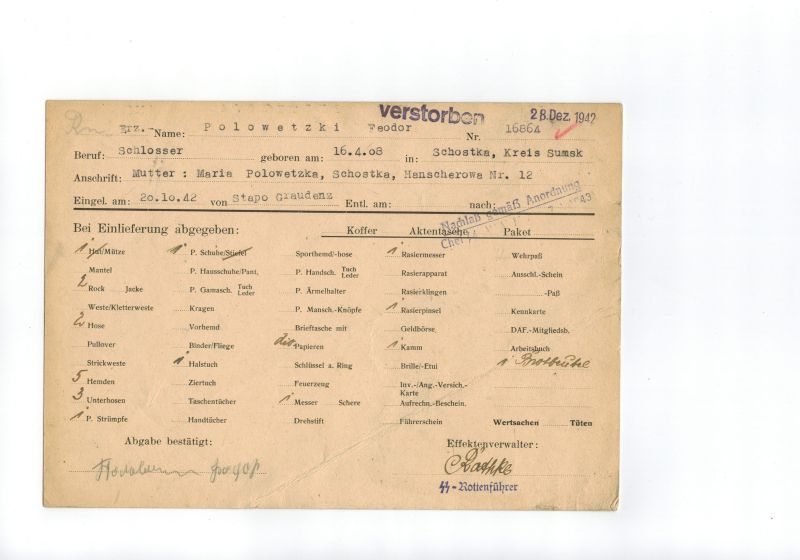 verstorben 28. Dez. 1942
Erz.- Name: Polowetzki Feodor Nr. 16864
Beruf: Schlosser geboren am: 16.4.08 in: Schostka, Kreis Sumsk
Anschrift: Mutter : Maria Polowetzka, Schostka, Hanscherowa Nr. 12
Eingel. am: 20.10.42 von Stapo Graudenz Entl. am: nach:
Nachlaß gemäß Anordnung
Bei Einlieferung abgegeben: Koffer Aktentasche Paket
1 Hut/Mütze 1 P. Schuhe/Stiefel Sporthemd/-hose 1 Rasiermesser Wehrpaß
Mantel P. Hausschuhe/Pant. P. Handsch. Tuch Leder Rasierapparat Ausschl.-Schein
2 Rock Jacke P. Gamasch. Tuch Leder P. Ärmelhalter Rasierklingen -Paß
Weste/Kletterweste Kragen P. Mansch.-Knöpfe 1 Rasierpinsel Kennkarte
2 Hose Vorhemd Brieftasche mit Geldbörse DAF.-Mitgliedsb.
Pullover Binder/Fliege div. Papieren 1 Kamm Arbeitsbuch
Strickweste 1 Halstuch Schlüssel a. Ring Brille/-Etui 1 Brotbeutel
5 Hemden Ziertuch Feuerzeug Inv.-/Ang.-Versich.-Karte
3 Unterhosen Taschentücher 1 Messer Schere Aufrechn.-Beschein.
1 P. Strümpfe Handtücher Drehstift Führerschein Wertsachen Tüten
Abgabe bestätigt: Effektenverwalter:
Rathke
SS-Rottenführer